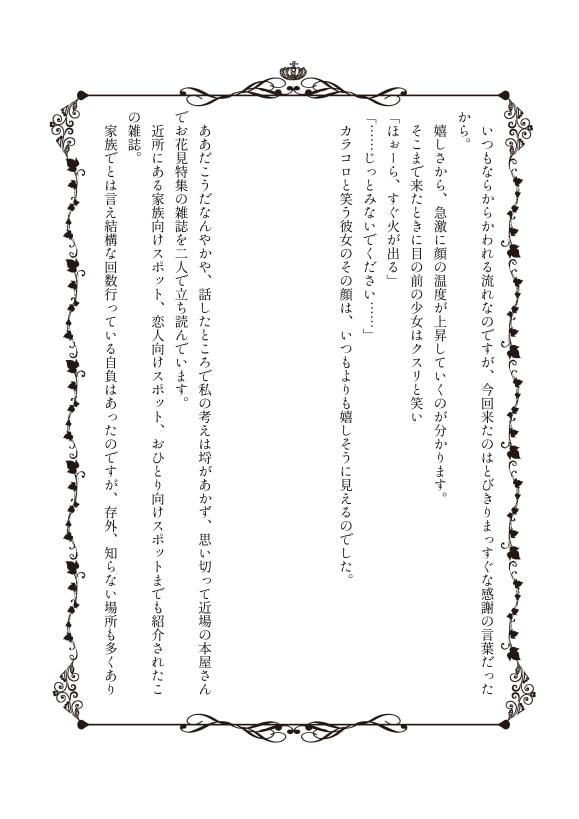 いつもならからかわれる流れなのですが、今回来たのはとびきりまっすぐな感謝の言葉だった
から。
嬉しさから、急激に顔の温度が上昇していくのが分かります。
そこまで来たときに目の前の少女はクスリと笑い
「ほぉーら、すぐ火が出る」
「……じっとみないでください……」
カラコロと笑う彼女のその顔は、いつもよりも嬉しそうに見えるのでした。
ああだこうだなんやかや、話したところで私の考えは埒があかず、思い切って近場の本屋さん
でお花見特集の雑誌を二人で立ち読んでいます。
近所にある家族向けスポット、恋人向けスポット、おひとり向けスポットまでも紹介されたこ
の雑誌。
家族でとは言え結構な回数行っている自負はあったのですが、存外、知らない場所も多くあり